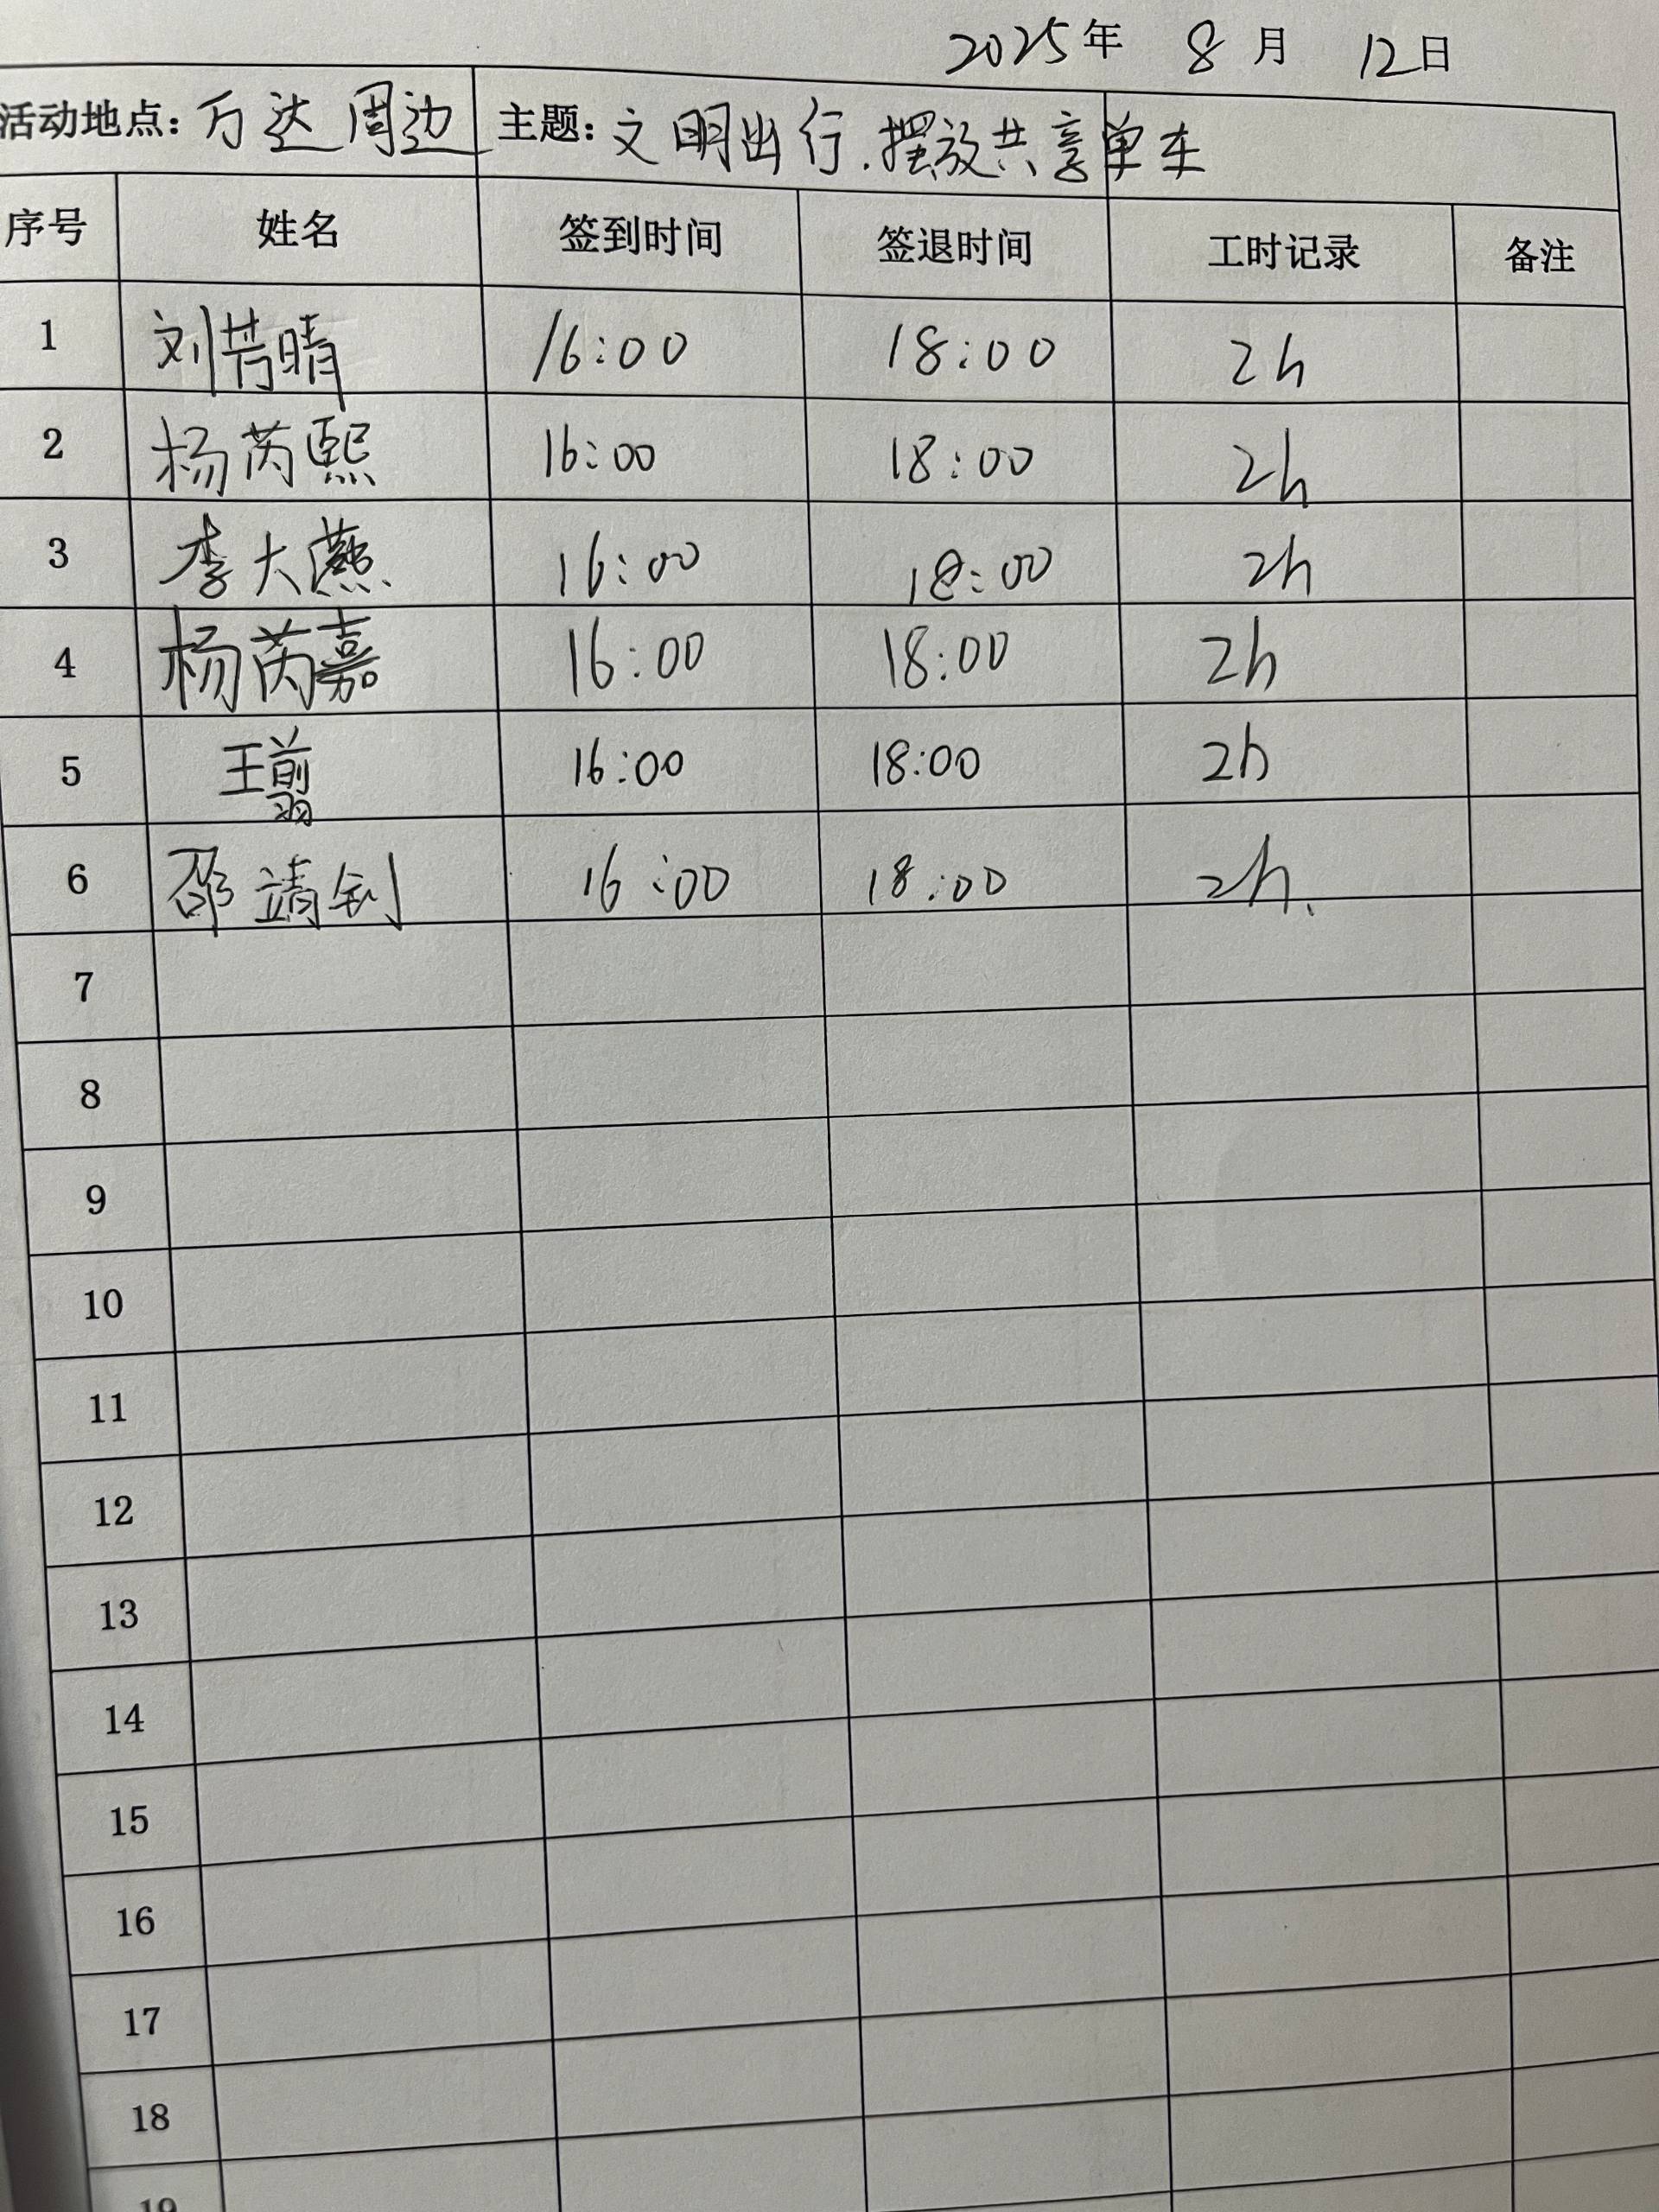 2025年 8月 12日
活动地点: 万达周边 主题: 文明出行.摆放共享单车
序号 姓名 签到时间 签退时间 工时记录 备注
1 刘芳晴 16:00 18:00 2h
2 杨芮熙 16:00 18:00 2h
3 李大燕 16:00 18:00 2h
4 杨芮嘉 16:00 18:00 2h
5 王翦 16:00 18:00 2h
6 邵靖钊 16:00 18:00 2h.
7
8
9
10
11
12
13
14
15
16
17
18
19